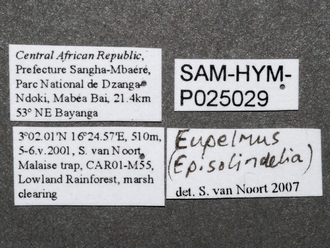 Central African Republic,
Prefecture Sangha-Mbaéré,
Parc National de Dzanga-
Ndoki, Mabéa Bai, 21.4km
53° NE Bayanga
SAM-HYM-
P025029
3°02.01'N 16°24.57'E, 510m,
5-6.v.2001, S. van Noort,
Malaise trap, CAR01-M55,
Lowland Rainforest, marsh
clearing
Eupelmus
(Episolindelia)
det. S. van Noort 2007